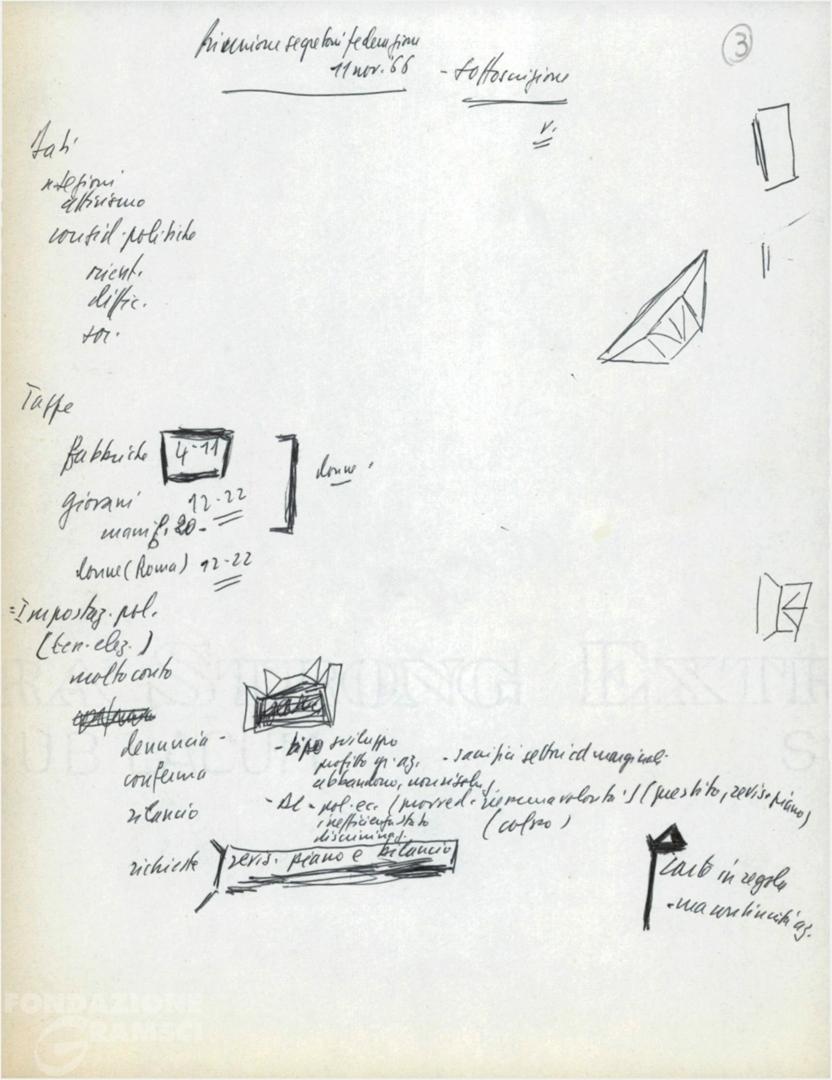 Riunione segretari federazione
11 nov. '66
- sottoscrizione
3
v.
Dati
regioni
attivismo
consid. politiche
orient.
diffic.
Tappe
fabbriche 4-11
giovani 12-22
manif. 20-
donne (Roma) 12-22
donne
= Impostaz. pol.
(ten. elez.)
molto conto
denuncia -
conferma
rilancio
richieste
- tipo sviluppo
profitto gr. az. - sacrifici settori ed marginali
abbandono,
- pol. ec. (prestito, revis. piano)
inefficienza stato
(colpo)
discriminaz.
revis. piano e bilancio
carte in regola
- ma continuità az.
RA STRONG EXTR
SUB LACU
S
FONDAZIONE
GRAMSCI